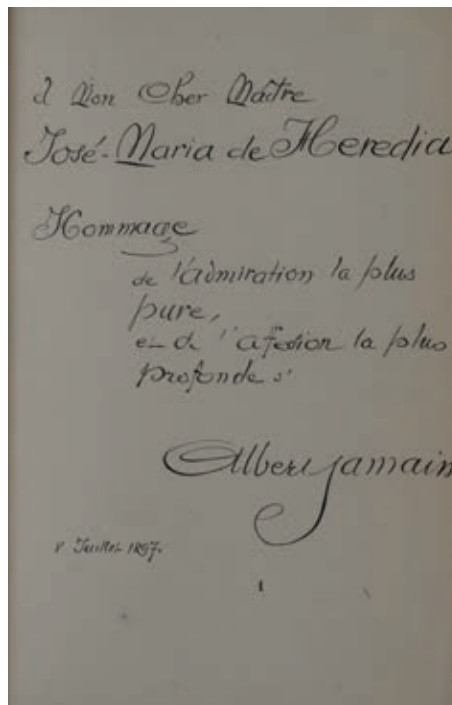 à Mon Cher Maître
José-Maria de Heredia
Hommage
de l'admiration la plus
pure,
et de l'afection la plus
profonde
Albert Jamain
Juillet 1897.
1